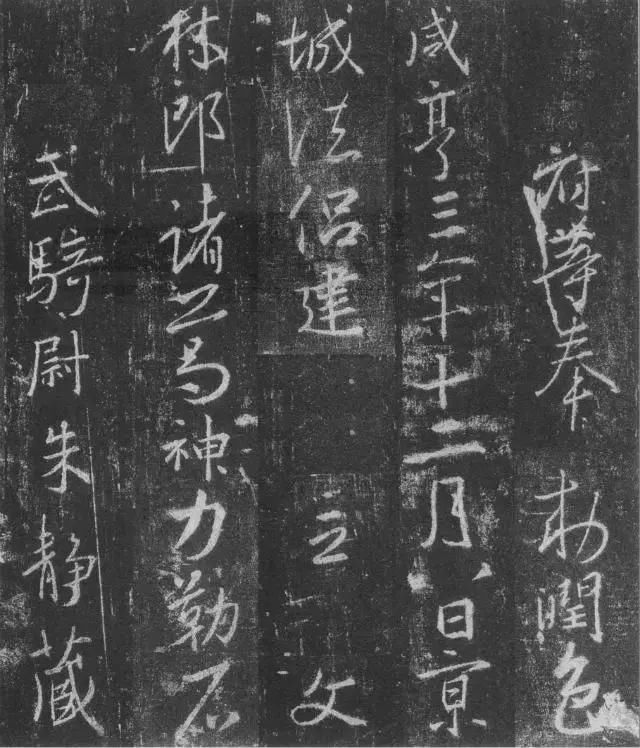 府等奉 敕潤色
咸亨三年十二月八日京
城法侶建 立 文
林郎諸葛神力勒石
武騎尉朱靜藏